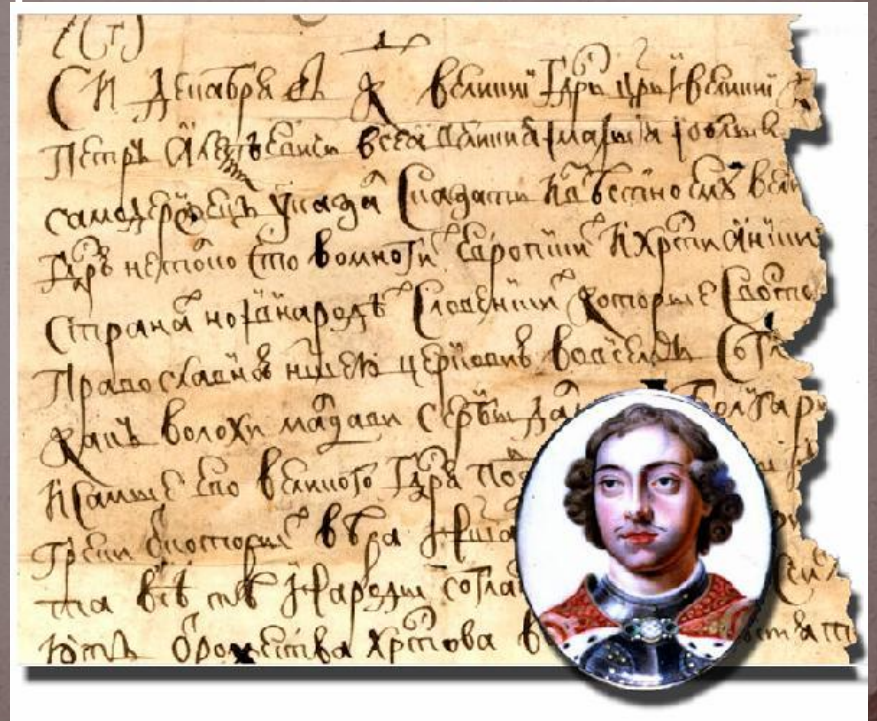 Декабря въ К великиі Гдрь црь і великиі
Петръ Алеѯѣевичь всеа Великия и Малыя и Бѣлыя
самодержецъ указал сказать извѣстно ему вели
Гдрю не толко что во многих Европских и Хрстианских
странах но и в народѣх Словенских которые с восточ
православною нашею церковию во всемъ согл
какъ волохи малдави сербы дал болгары
и самые его великого Гдря под
греки от которых вѣра наша
та всѣ тѣ народы согла
ютъ от Рожества Хрстова в